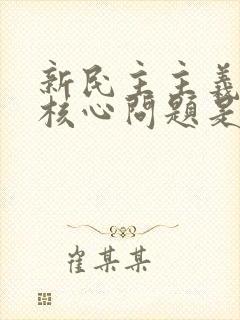 新民主主義
核心問題是
崔某某